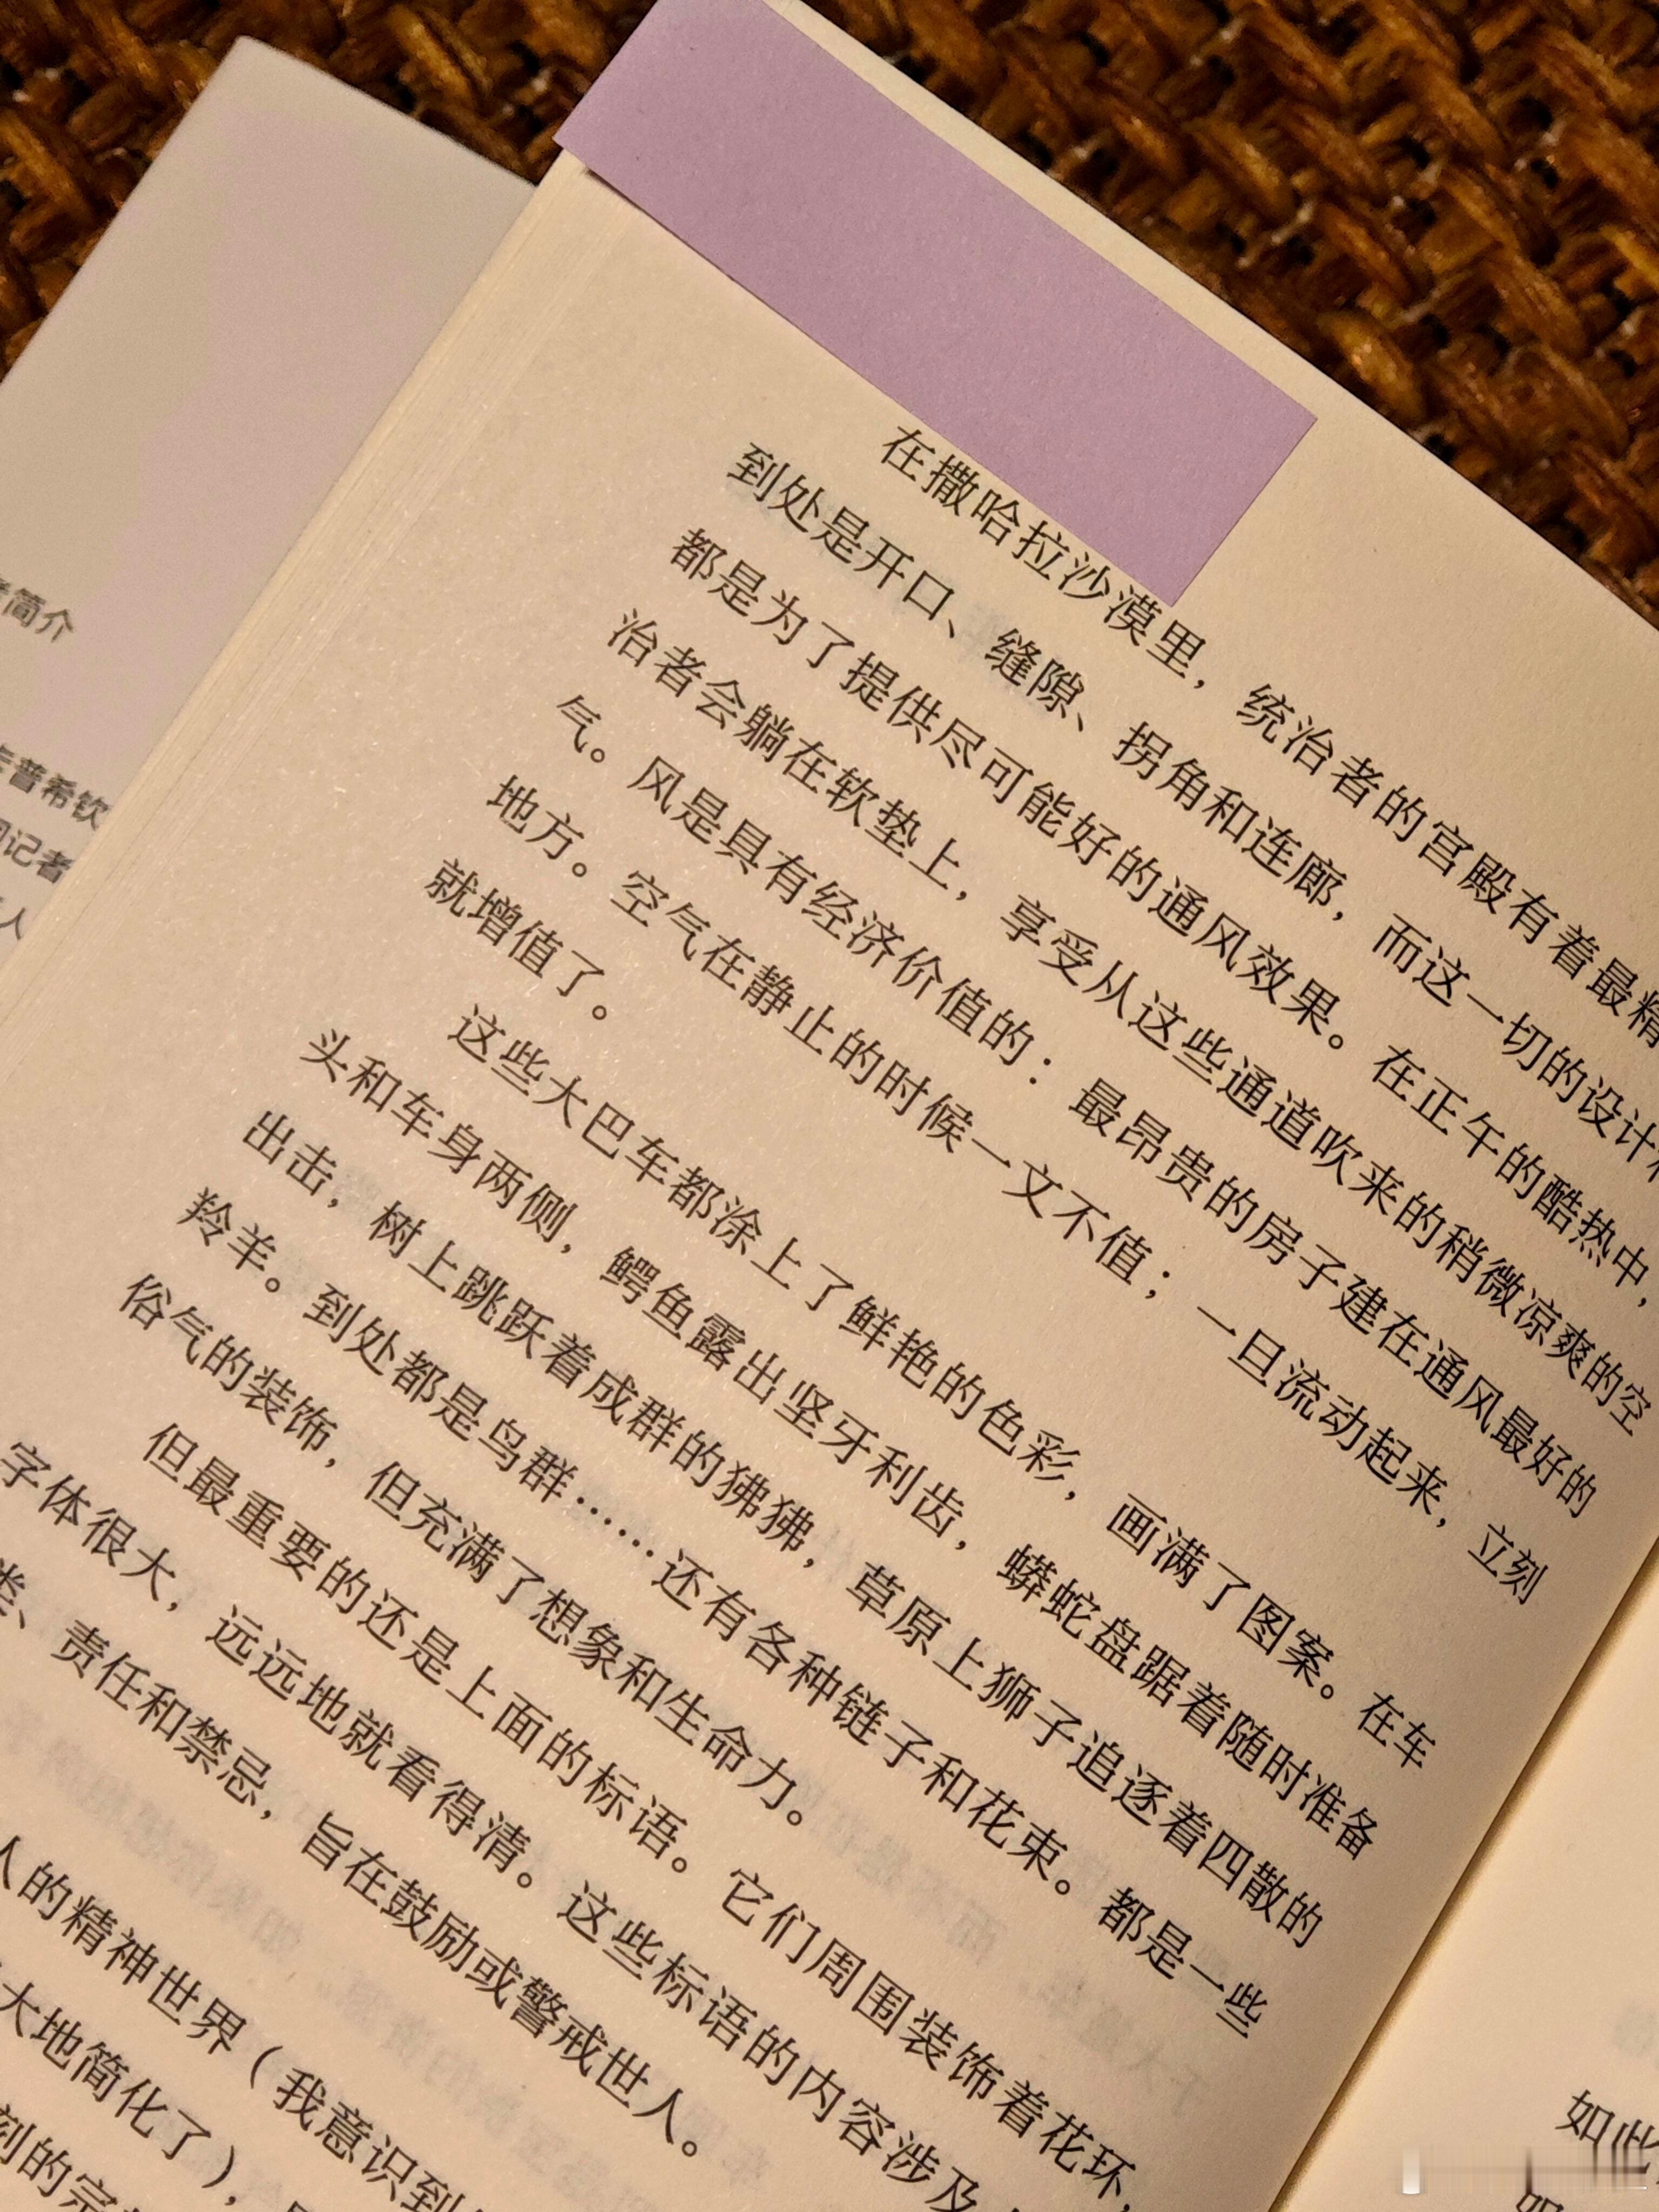 简介
普希钦
记者
人
在撒哈拉沙漠里，统治者的宫殿有着最精
到处是开口、缝隙、拐角和连廊，而这一切的设计
都是为了提供尽可能好的通风效果。在正午的酷热中，
治者会躺在软垫上，享受从这些通道吹来的稍微凉爽的空
气。风是具有经济价值的：最昂贵的房子建在通风最好的
地方。空气在静止的时候一文不值；一旦流动起来，立刻
就增值了。
这些大巴车都涂上了鲜艳的色彩，画满了图案。在车
头和车身两侧，鳄鱼露出坚牙利齿，蟒蛇盘踞着随时准备
出击，树上跳跃着成群的狒狒，草原上狮子追逐着四散的
羚羊。到处都是鸟群……还有各种链子和花束。都是一些
俗气的装饰，但充满了想象和生命力。
但最重要的还是上面的标语。它们周围装饰着花环，
字体很大，远远地就看得清。这些标语的内容涉及
类、责任和禁忌，旨在鼓励或警戒世人。
人的精神世界（我意识到
大地简化了），
刻的宗
如此